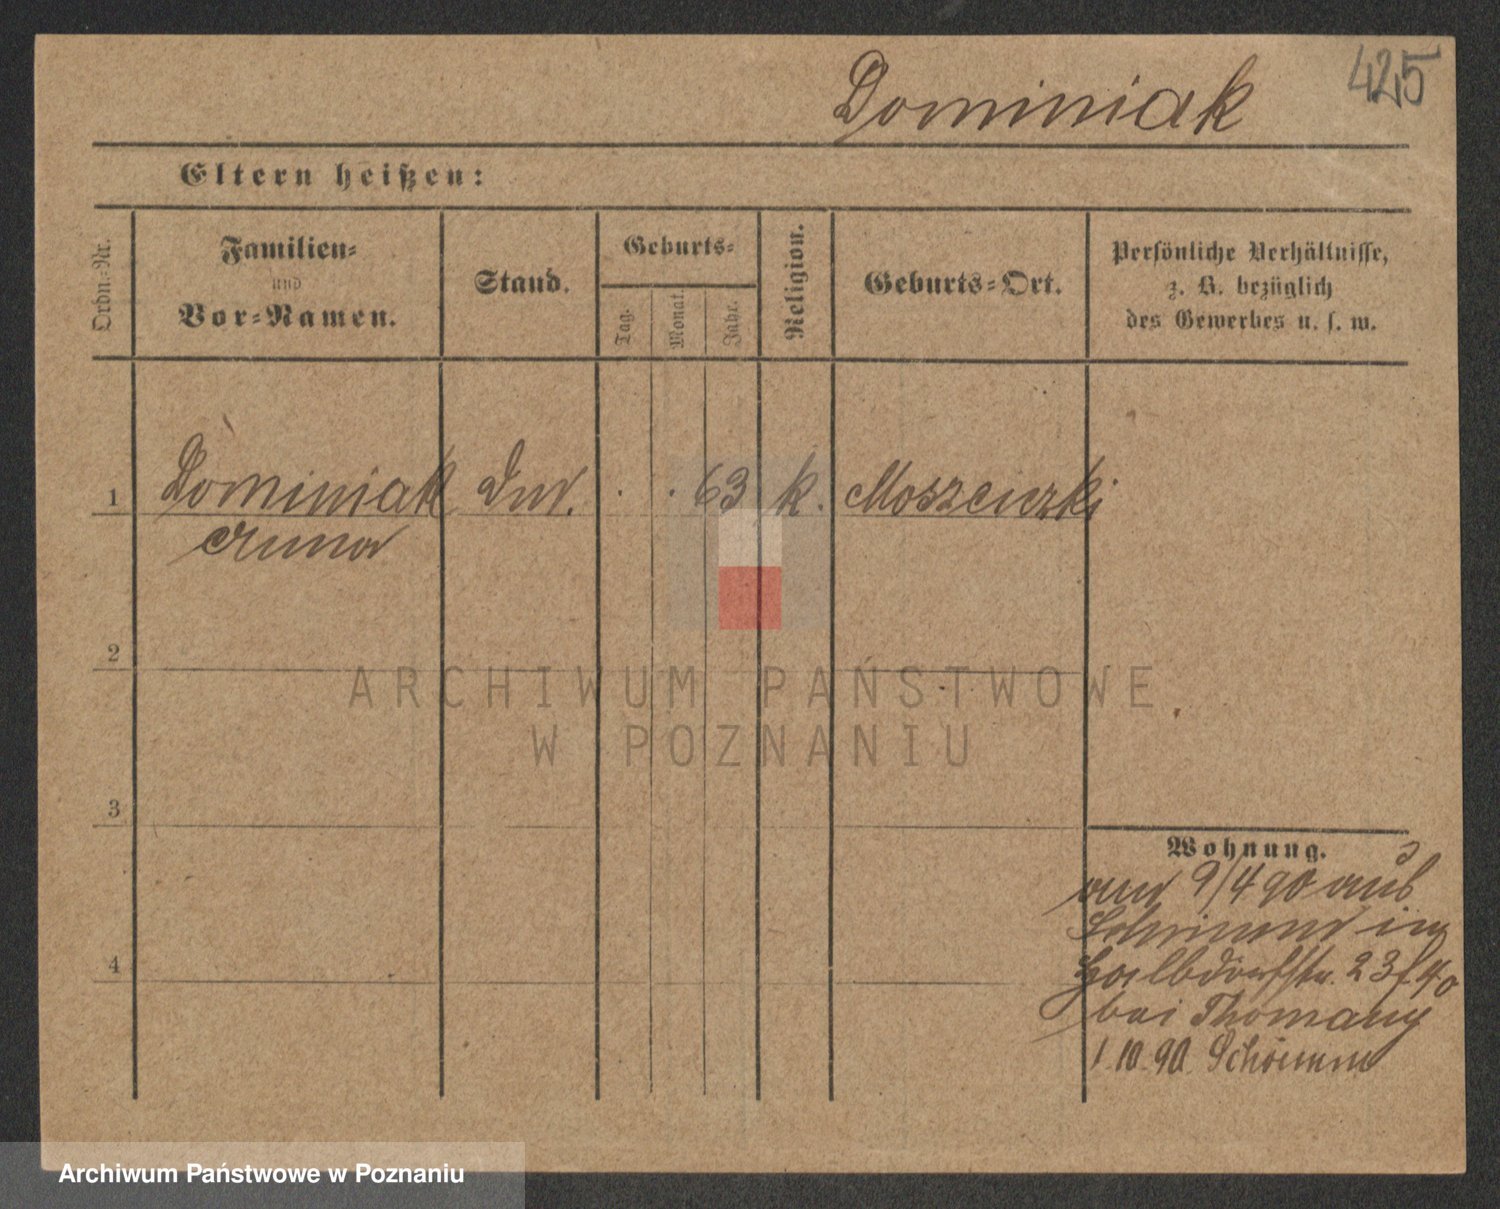 425
Dominiak
Eltern heißen:
Ordn.-Nr.
Familien-
und
Vor-Namen.
Stand.
Geburts-
Tag.
Monat.
Jahr.
Religion.
Geburts-Ort.
Persönliche Verhältnisse,
z. B. bezüglich
des Gewerbes u. s. w.
1 Dominiak . . 63 k. Moszciczki
Anna
2
ARCHIWUM PAŃSTWOWE
W POZNANIU
3
Wohnung.
9/4 90 aus
in
Halbdorfstr. 23
4
bei Thomany
1.10.90 Schrimm
Archiwum Państwowe w Poznaniu